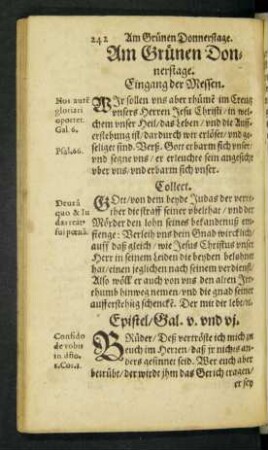 242 Am Grünen Donnerstage.
Am Grünen Don-
nerstage.
Eingang der Messen.
Nos autē
gloriari
oportet.
Gal. 6.
WIr sollen vns aber rhümē im Creuz
vnsers Herren Jesu Christi / in wel-
chem vnser Heil / das Leben / vnd die Auff-
erstehung ist / dardurch wir erlöset / vnd ge-
seliget sind. Verß. Gott erbarm sich vnser /
Psal. 66.
vnd segne vns / er erleuchte sein angesicht
vber vns / vnd erbarm sich vnser.
Collect.
Deus à
quo & Iu
das
GOtt / von dem beyde Judas der verrä-
ther die straff seiner vbelthat / vnd der
Mörder den lohn seines bekandtnuß em-
pfienge: Verleih vns dein Gnad wircklich /
auff daß gleich / wie Jesus Christus vnser
Herr in seinem Leiden die beyden belohnet
hat / einen jeglichen nach seinem verdienst /
Also wöll er auch von vns den alten Jrr-
thumb hinweg nemen / vnd die gnad seiner
aufferstehūg schenckē. Der mit dir lebt / ꝛc.
Epistel / Gal. v. vnd vj.
Confido
de vobis
in dño.
BRüder / Deß vertröste ich mich zu
euch im Herren / daß jr nichts an-
ders gesinnet seid. Wer euch aber
betrübt / der wirdt jhm das Gericht tragen /
er sey